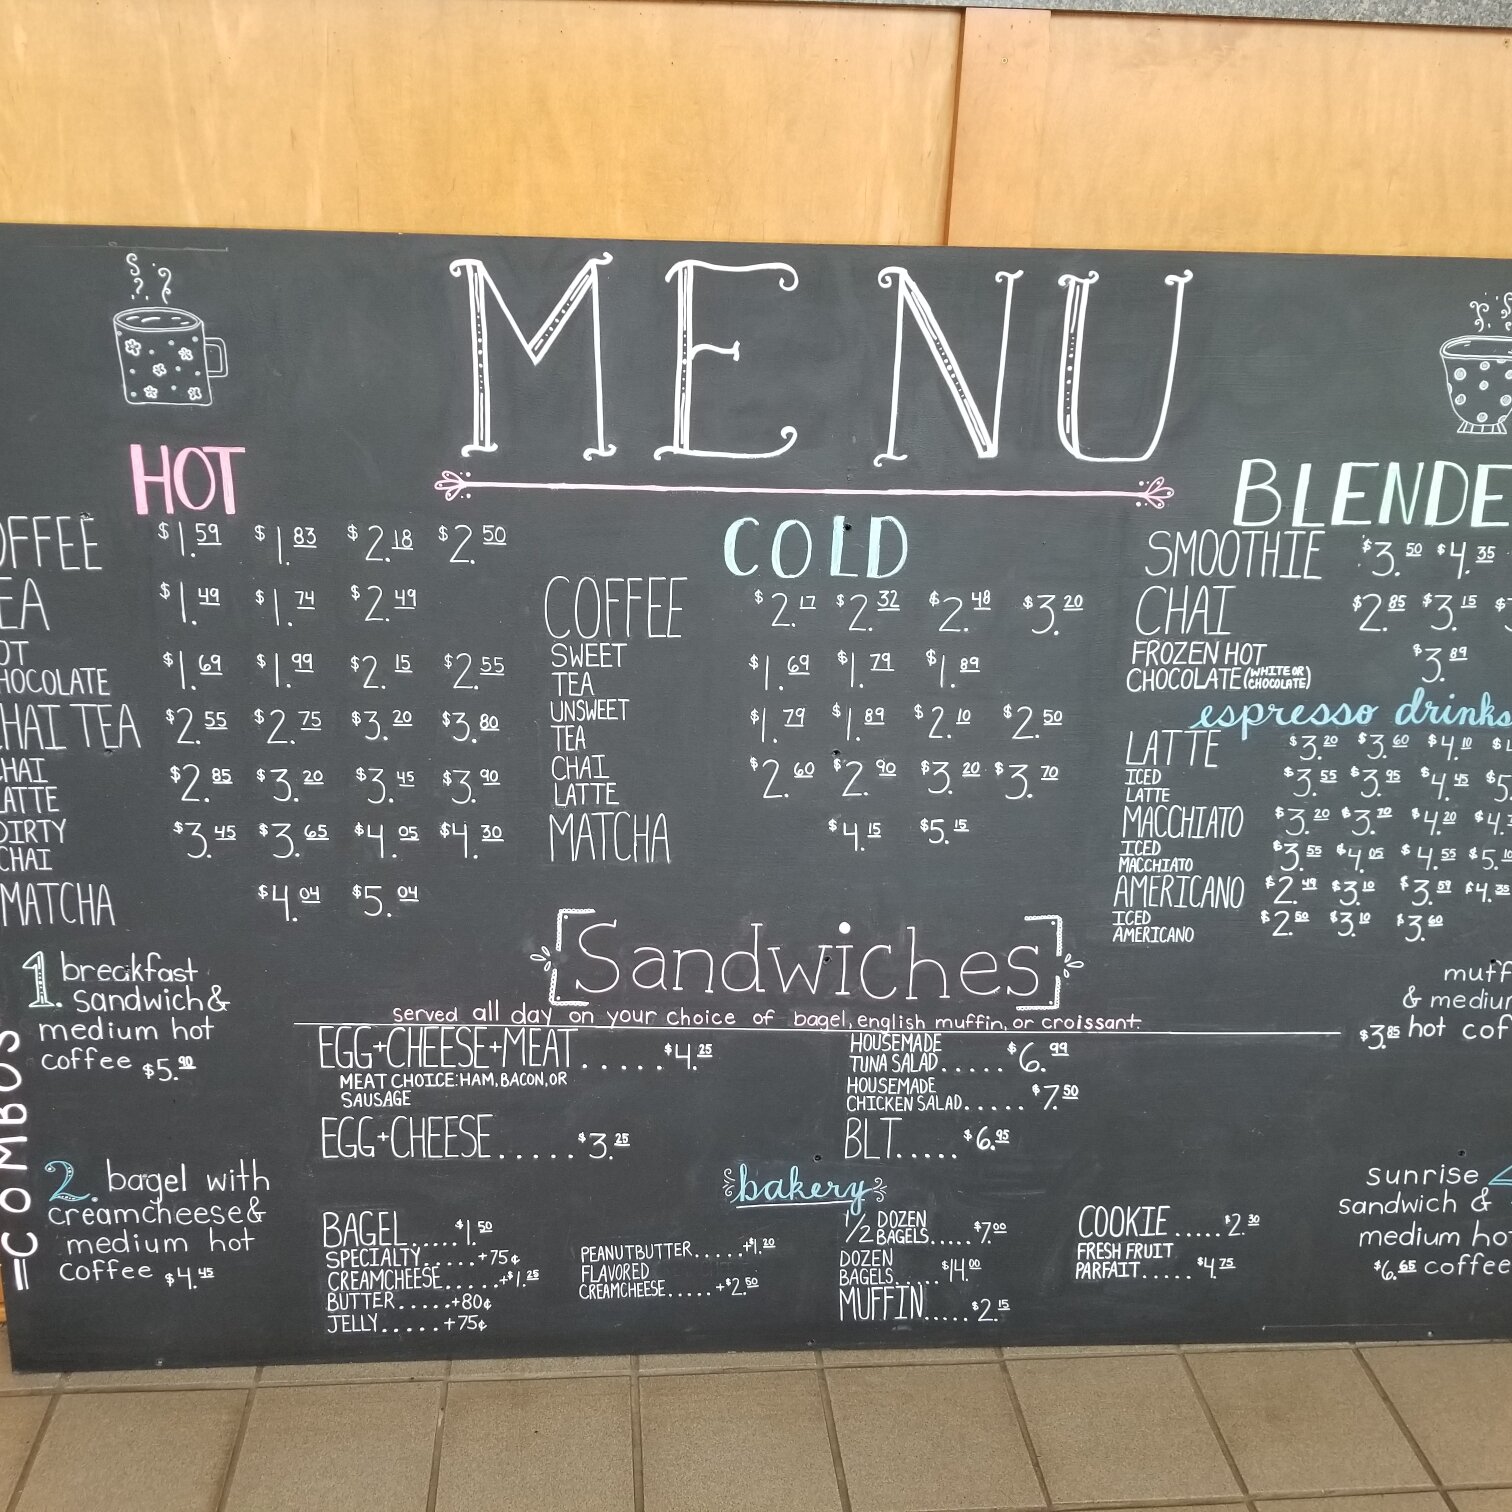 MENU
HOT
OFFEE $1.59 $1.83 $2.18 $2.50
EA $1.49 $1.74 $2.49
OT
HOCOLATE $1.69 $1.99 $2.15 $2.55
HAI TEA $2.55 $2.75 $3.20 $3.80
HAI
ATTE $2.85 $3.20 $3.45 $3.90
DIRTY
CHAI $3.45 $3.65 $4.05 $4.30
MATCHA $4.04 $5.04
COLD
COFFEE $2.17 $2.32 $2.48 $3.20
SWEET
TEA $1.69 $1.79 $1.89
UNSWEET
TEA $1.79 $1.89 $2.10 $2.50
CHAI
LATTE $2.60 $2.90 $3.20 $3.70
MATCHA $4.15 $5.15
BLENDE
SMOOTHIE $3.50 $4.35
CHAI $2.85 $3.15
FROZEN HOT
CHOCOLATE (WHITE OR CHOCOLATE) $3.89
espresso drinks
LATTE $3.20 $3.60 $4.10
ICED
LATTE $3.55 $3.95 $4.45 $5.
MACCHIATO $3.20 $3.70 $4.20 $4.
ICED
MACCHIATO $3.55 $4.05 $4.55 $5.10
AMERICANO $2.49 $3.10 $3.59 $4.35
ICED
AMERICANO $2.50 $3.10 $3.60
COMBOS
1. breakfast
sandwich &
medium hot
coffee $5.90
2. bagel with
creamcheese &
medium hot
coffee $4.45
Sandwiches
served all day on your choice of bagel, english muffin, or croissant.
EGG+CHEESE+MEAT......$4.25
MEAT CHOICE: HAM, BACON, OR
SAUSAGE
EGG+CHEESE.....$3.25
HOUSEMADE
TUNA SALAD.....$6.99
HOUSEMADE
CHICKEN SALAD.....$7.50
BLT.....$6.95
bakery
BAGEL.....$1.50
SPECIALTY.....+75¢
CREAMCHEESE.....+$1.25
BUTTER.....+80¢
JELLY.....+75¢
PEANUTBUTTER.....+$1.20
FLAVORED
CREAMCHEESE.....+$2.50
1/2 DOZEN
BAGELS.....$7.00
DOZEN
BAGELS.....$14.00
MUFFIN.....$2.15
COOKIE.....$2.30
FRESH FRUIT
PARFAIT.....$4.75
muff
& mediu
$3.85 hot cof
sunrise
sandwich &
medium ho
$6.65 coffee